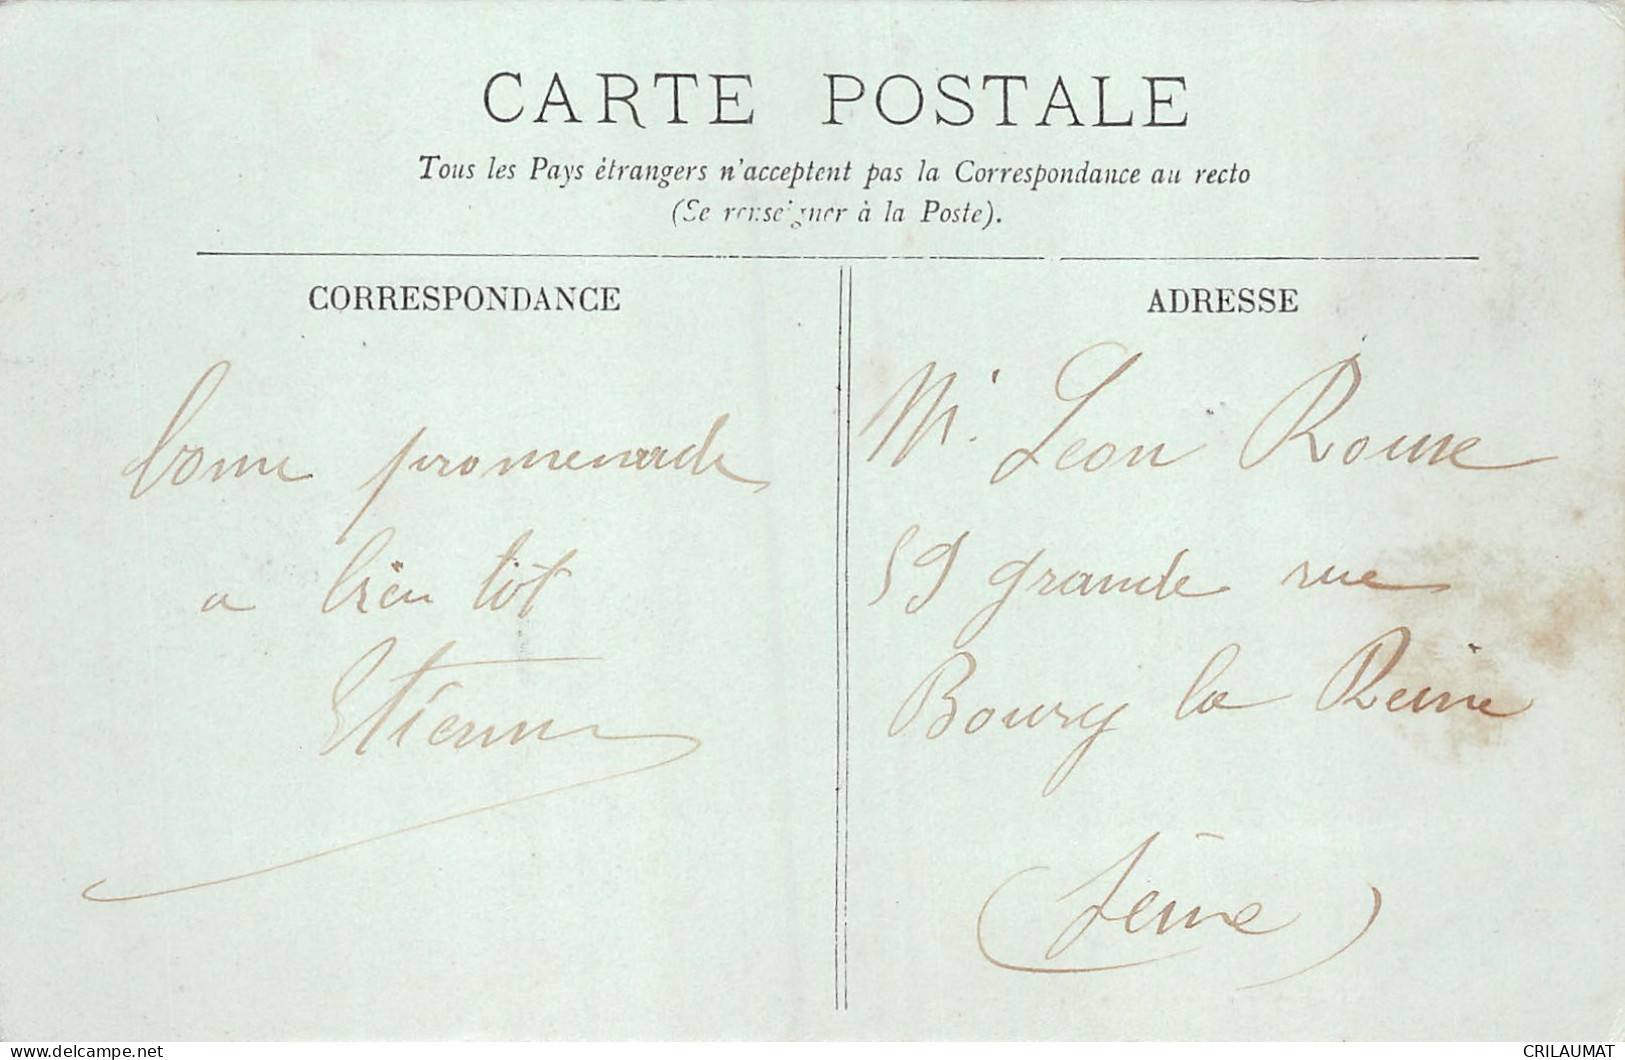 CARTE POSTALE
Tous les Pays étrangers n'acceptent pas la Correspondance au recto
(Se renseigner à la Poste).
CORRESPONDANCE
bonne promenade
a bien tôt
Etienne
ADRESSE
M. Léon
59 grande rue
Bourg la Reine
(Seine)
delcampe.net
CRILAUMAT